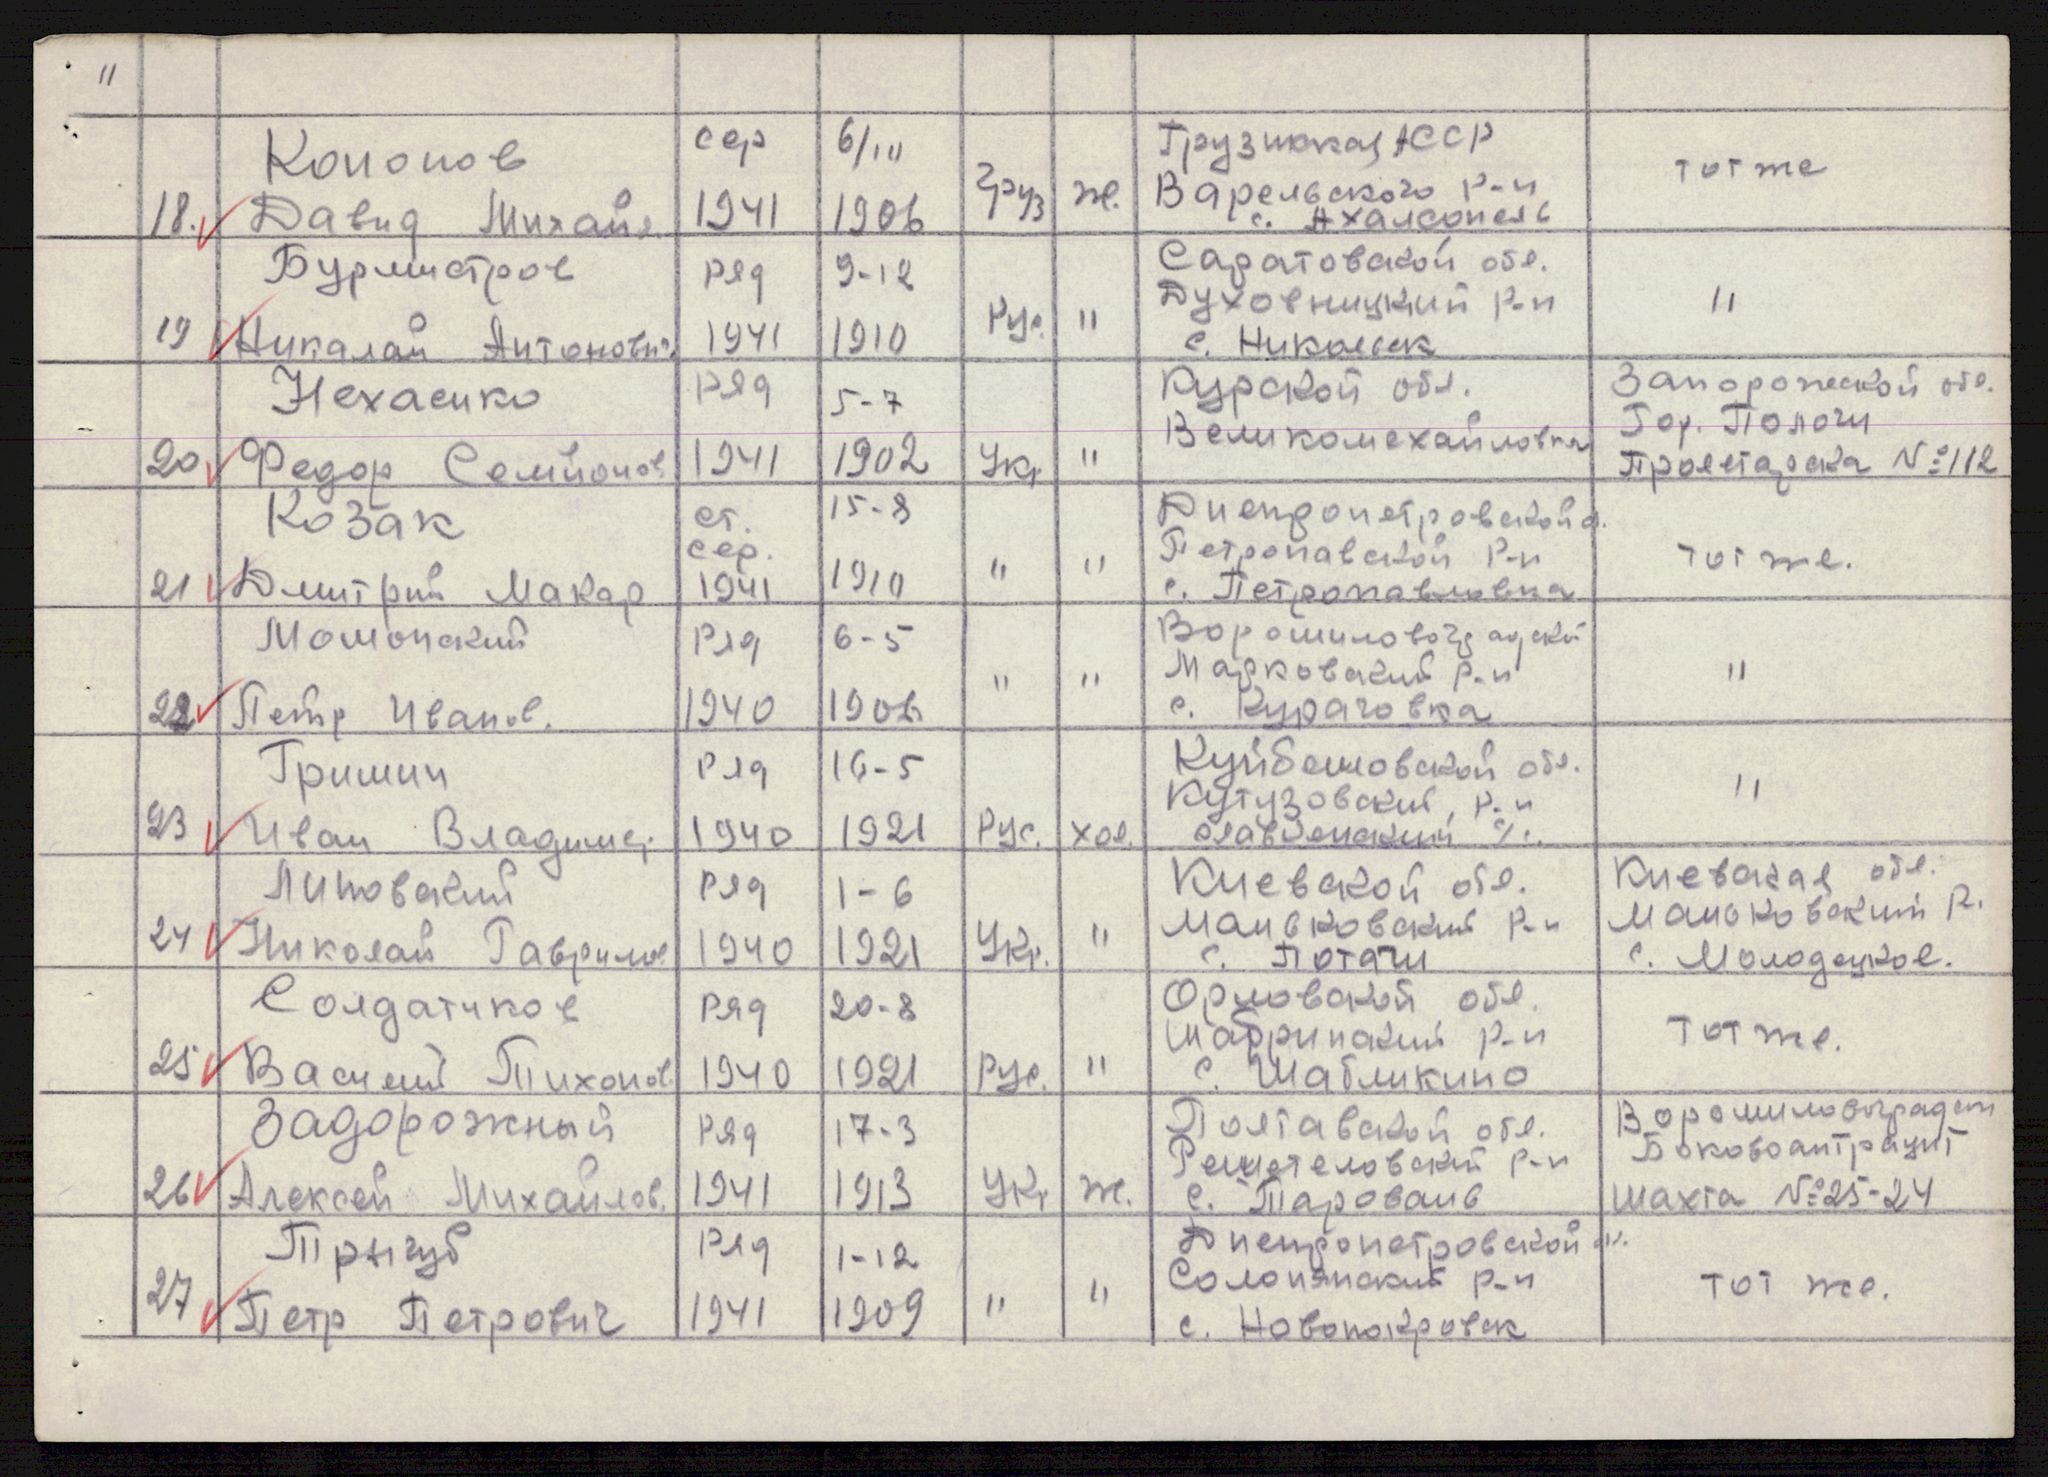 "
Кононов сер 6/III Грузинская АССР
тот же
18. Давид Михайл. 1941 1906 Груз ж. Варельского р-н
с. Ахалсопель
Бурмистров ряд 9-12 Саратовской обл.
Духовницкий р-н "
19 Николай Антонович. 1941 1910 Рус. " с. Никольск
Нехаенко ряд 5-7 Курской обл. Запорожской обл.
Великомехайловка Гор. Пологи
20 Федор Семионов 1941 1902 Укр " Пролетарска № 112
Козак ст. 15-8 Днепропетровской о.
сер. Петропавской р-н тот же.
21 Дмитрий Макар 1941 1910 " " с. Петропавловка
Момонский Ряд 6-5 Ворошиловоградской
" " Марковский р-н "
22 Петр Иванов. 1940 1906 с. Курачовка
Гришин ряд 16-5 Куйбешовской обл.
Кутузовский р-н "
23 Иван Владимер 1940 1921 Рус. хол. славленский с/с.
Липовский ряд 1-6 Киевской обл. Киевская обл.
Маньковский р-н Маньковский р.
24 Николай Гаврилов 1940 1921 Укр. " с. Поташи с. Молодецкое.
Солдатиков ряд 20-8 Орловской обл.
Шабринский р-н тот же.
25 Василий Тихонов. 1940 1921 Рус. " с. Шабликино
Задорожный ряд 17-3 Полтавской обл. Ворошиловоградск
Решетеловский р-н Боковоантрацит
26 Алексей Михайлов. 1941 1913 Укр ж. с. Тароваив шахта № 25-24
Трынгуб ряд 1-12 Днепропетровской о.
Солонянский р-н тот же.
27 Петр Петрович 1941 1909 " " с. Новопокровск